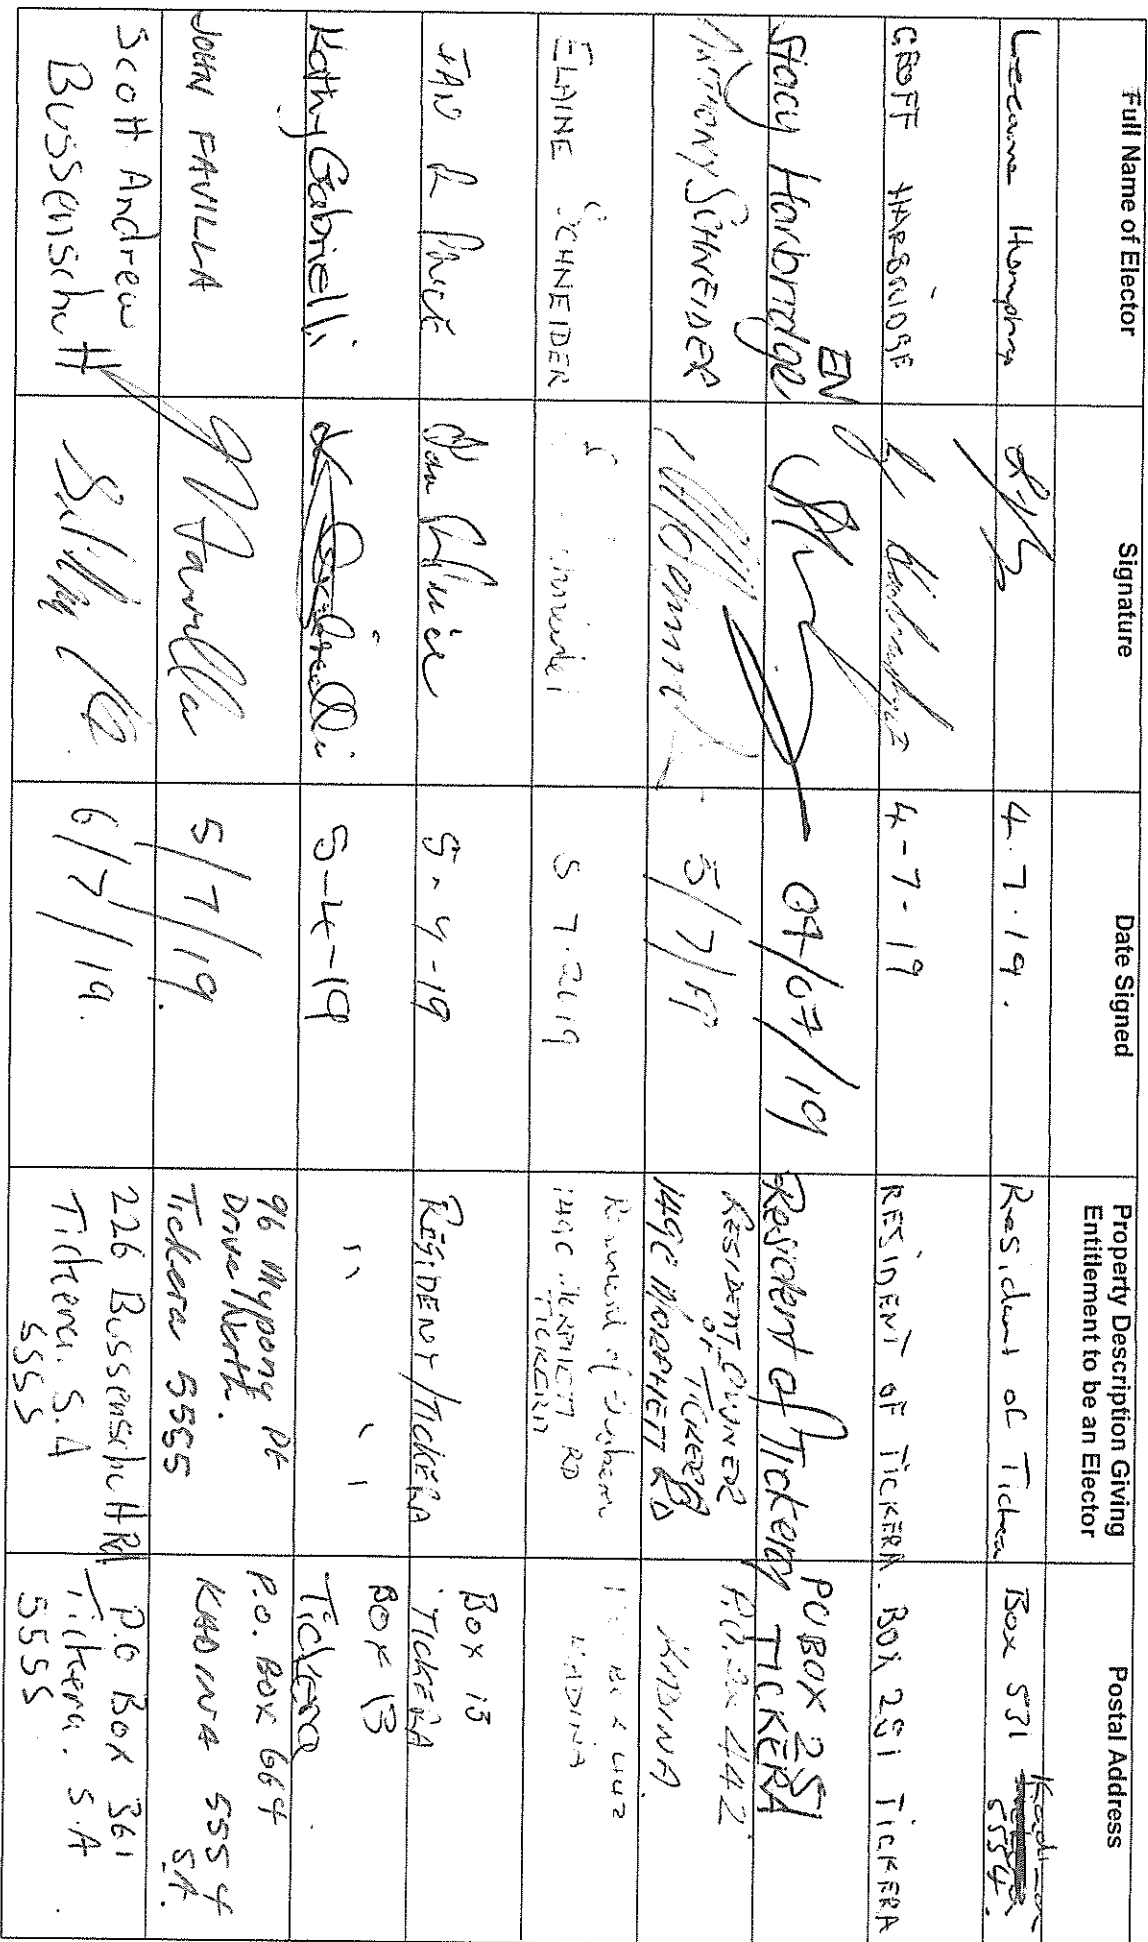 Full Name of Elector
Signature
Date Signed
Property Description Giving
Entitlement to be an Elector
Postal Address
Leeanne
4.7.19.
Resident of Tickera
Box 531 Kadina
5554.
GEOFF HARBRIDGE
4-7-19
RESIDENT OF TICKERA.
BOX 251 TICKERA
Stacy Harbridge
04/07/19
Resident of Tickera
PO BOX 251
TICKERA
ANTHONY SCHNEIDER
5/7/19
RESIDENT OWNER
OF TICKERA
149C MORPHETT RD
442
KADINA
ELAINE SCHNEIDER
5 7.2019
of
149C MORPHETT RD
TICKERA
442
KADINA
JAN R PRICE
Jan R Price
RESIDENT/TICKERA
Box 13
TICKERA
Kathy Gabrielli
K Gabrielli
" "
Box 13
Tickera.
JOHN FAVILLA
J Favilla
5/7/19.
96 Myponie Pt
Drive North.
Tickera 5555
P.O. Box 664
KADINA 5554
S.A.
Scott Andrew
Bussenschutt
6/7/19.
226 Bussenschutt Rd
Tickera. S.A
5555
P.O Box 361
Tickera. S.A
5555